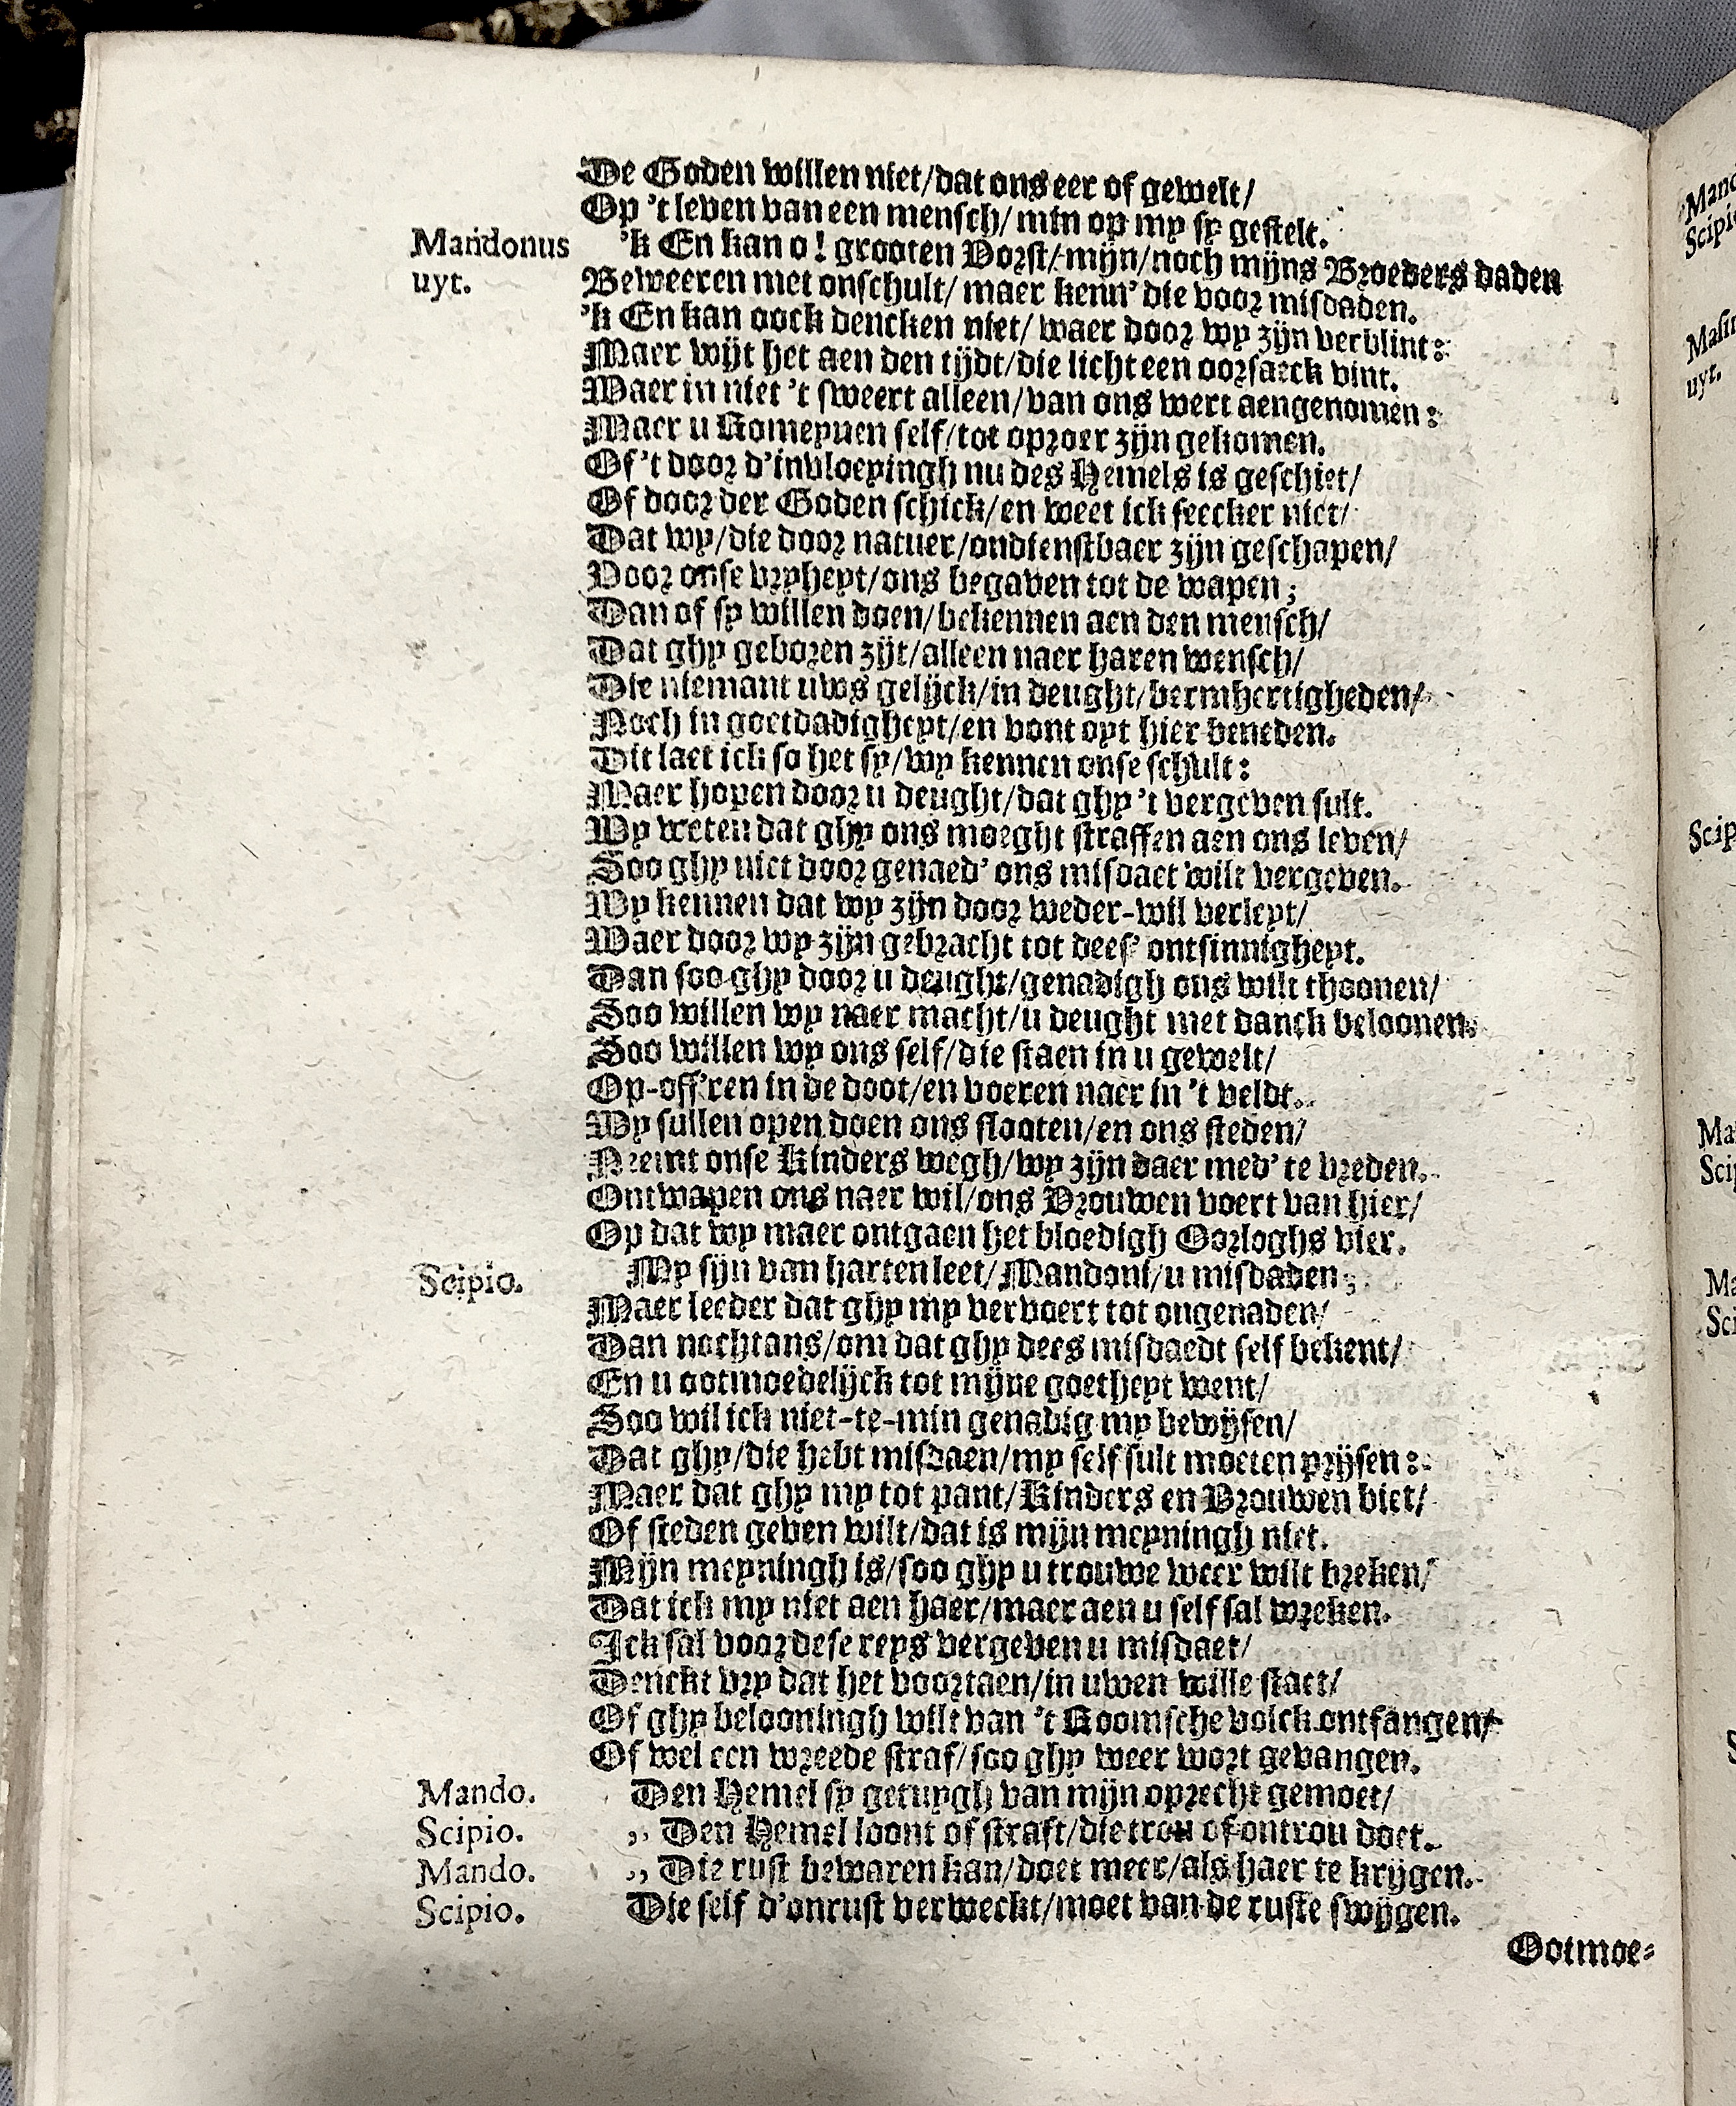 De Goden willen niet/dat ons eer of gewelt/
Op 't leven van een mensch/min op my sy gestelt.
Mandonus uyt. 'k En kan o! grooten Vorst/mijn/noch mijns Broeders daden
Beweeren met onschult/maer kenn' die voor misdaden.
'k En kan oock dencken niet/waer door wy zijn verblint:
Maer wijt het aen den tijdt/die licht een oorsaeck vint.
Maer in niet 't sweert alleen/van ons wert aengenomen:
Maer u Romeynen self/tot oproer zijn gekomen.
Of 't door d'invloeyingh nu des Hemels is geschiet/
Of door der Goden schick/en weet ick seecker niet/
Dat wy/die door natuer/ondienstbaer zijn geschapen/
Voor onse vryheyt/ons begaven tot de wapen;
Dan of sy willen doen/bekennen aen den mensch/
Dat ghy geboren zijt/alleen naer haren wensch/
Die niemant uws gelijck/in deught/bermhertigheden/
Noch in goetdadigheyt/en vont oyt hier beneden.
Dit laet ick so het sy/wy kennen onse schult:
Maer hopen door u deught/dat ghy 't vergeven sult.
Wy weten dat ghy ons moeght straffen aen ons leven/
Soo ghy niet door genaed' ons misdaet wilt vergeven.
Wy kennen dat wy zijn door weder-wil verleyt/
Waer door wy zijn gebracht tot dees' ontsinnigheyt.
Dan soo ghy door u deught/genadigh ons wilt thoonen/
Soo willen wy naer macht/u deught met danck beloonen.
Soo willen wy ons self/die staen in u gewelt/
Op-off'ren in de doot/en voeren naer in 't veldt.
Wy sullen open doen ons slooten/en ons steden/
Neemt onse Kinders wegh/wy zijn daer med' te vreden.
Ontwapen ons naer wil/ons Vrouwen voert van hier/
Op dat wy maer ontgaen het bloedigh Oorloghs vier.
Scipio. My sijn van harten leet/Mandoni/u misdaden;
Maer leeder dat ghy my vervoert tot ongenaden/
Dan nochtans/om dat ghy dees misdaedt self bekent/
En u ootmoedelijck tot mijne goetheyt went/
Soo wil ick niet-te-min genadig my bewijsen/
Dat ghy/die hebt misdaen/my self sult moeten prijsen:
Maer dat ghy my tot pant/Kinders en Vrouwen biet/
Of steden geven wilt/dat is mijn meyningh niet.
Mijn meyningh is/soo ghy u trouwe weer wilt breken/
Dat ick my niet aen haer/maer aen u self sal wreken.
Ick sal voor dese reys vergeven u misdaet/
Denckt vry dat het voortaen/in uwen wille staet/
Of ghy belooningh wilt van 't Roomsche volck ontfangen/
Of wel een wreede straf/soo ghy weer wort gevangen.
Mando. Den Hemel sy getuygh van mijn oprecht gemoet/
Scipio. ,, Den Hemel loont of straft/die trou of ontrou doet.
Mando. ,, Die rust bewaren kan/doet meer/als haer te krijgen.
Scipio. Die self d'onrust verweckt/moet van de ruste swijgen.
Ootmoe-
Scip
Ma
Scip
Ma